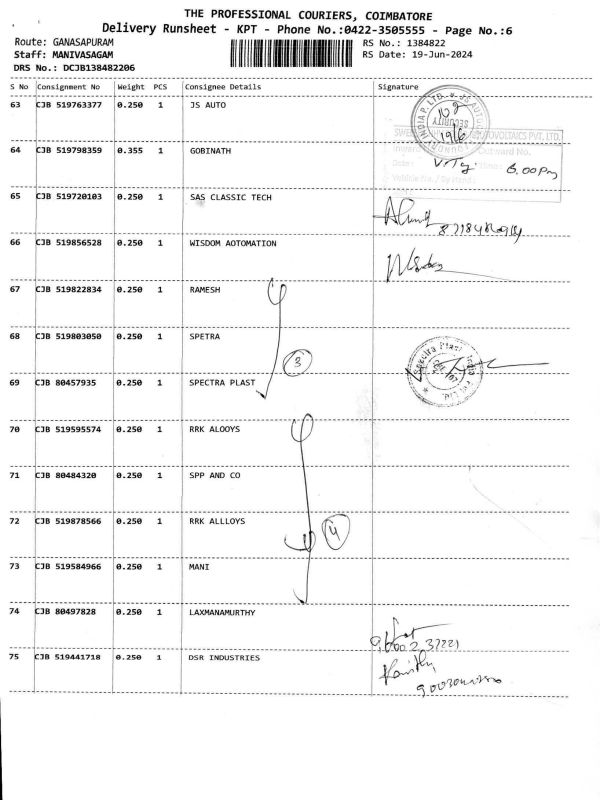 THE PROFESSIONAL COURIERS, COIMBATORE
Delivery Runsheet - KPT - Phone No.:0422-3505555 - Page No.:6
Route: GANASAPURAM RS No.: 1384822
Staff: MANIVASAGAM RS Date: 19-Jun-2024
DRS No.: DCJB138482206
S No Consignment No Weight PCS Consignee Details Signature
63 CJB 519763377 0.250 1 JS AUTO
SECURITY
19/6
64 CJB 519798359 0.355 1 GOBINATH
6.00 Pm
65 CJB 519720103 0.250 1 SAS CLASSIC TECH
66 CJB 519856528 0.250 1 WISDOM AOTOMATION
67 CJB 519822834 0.250 1 RAMESH
68 CJB 519803050 0.250 1 SPETRA
3
Spectra Plast India Pvt Ltd.
69 CJB 80457935 0.250 1 SPECTRA PLAST
70 CJB 519595574 0.250 1 RRK ALOOYS
71 CJB 80484320 0.250 1 SPP AND CO
72 CJB 519878566 0.250 1 RRK ALLLOYS
4
73 CJB 519584966 0.250 1 MANI
74 CJB 80497828 0.250 1 LAXMANAMURTHY
75 CJB 519441718 0.250 1 DSR INDUSTRIES